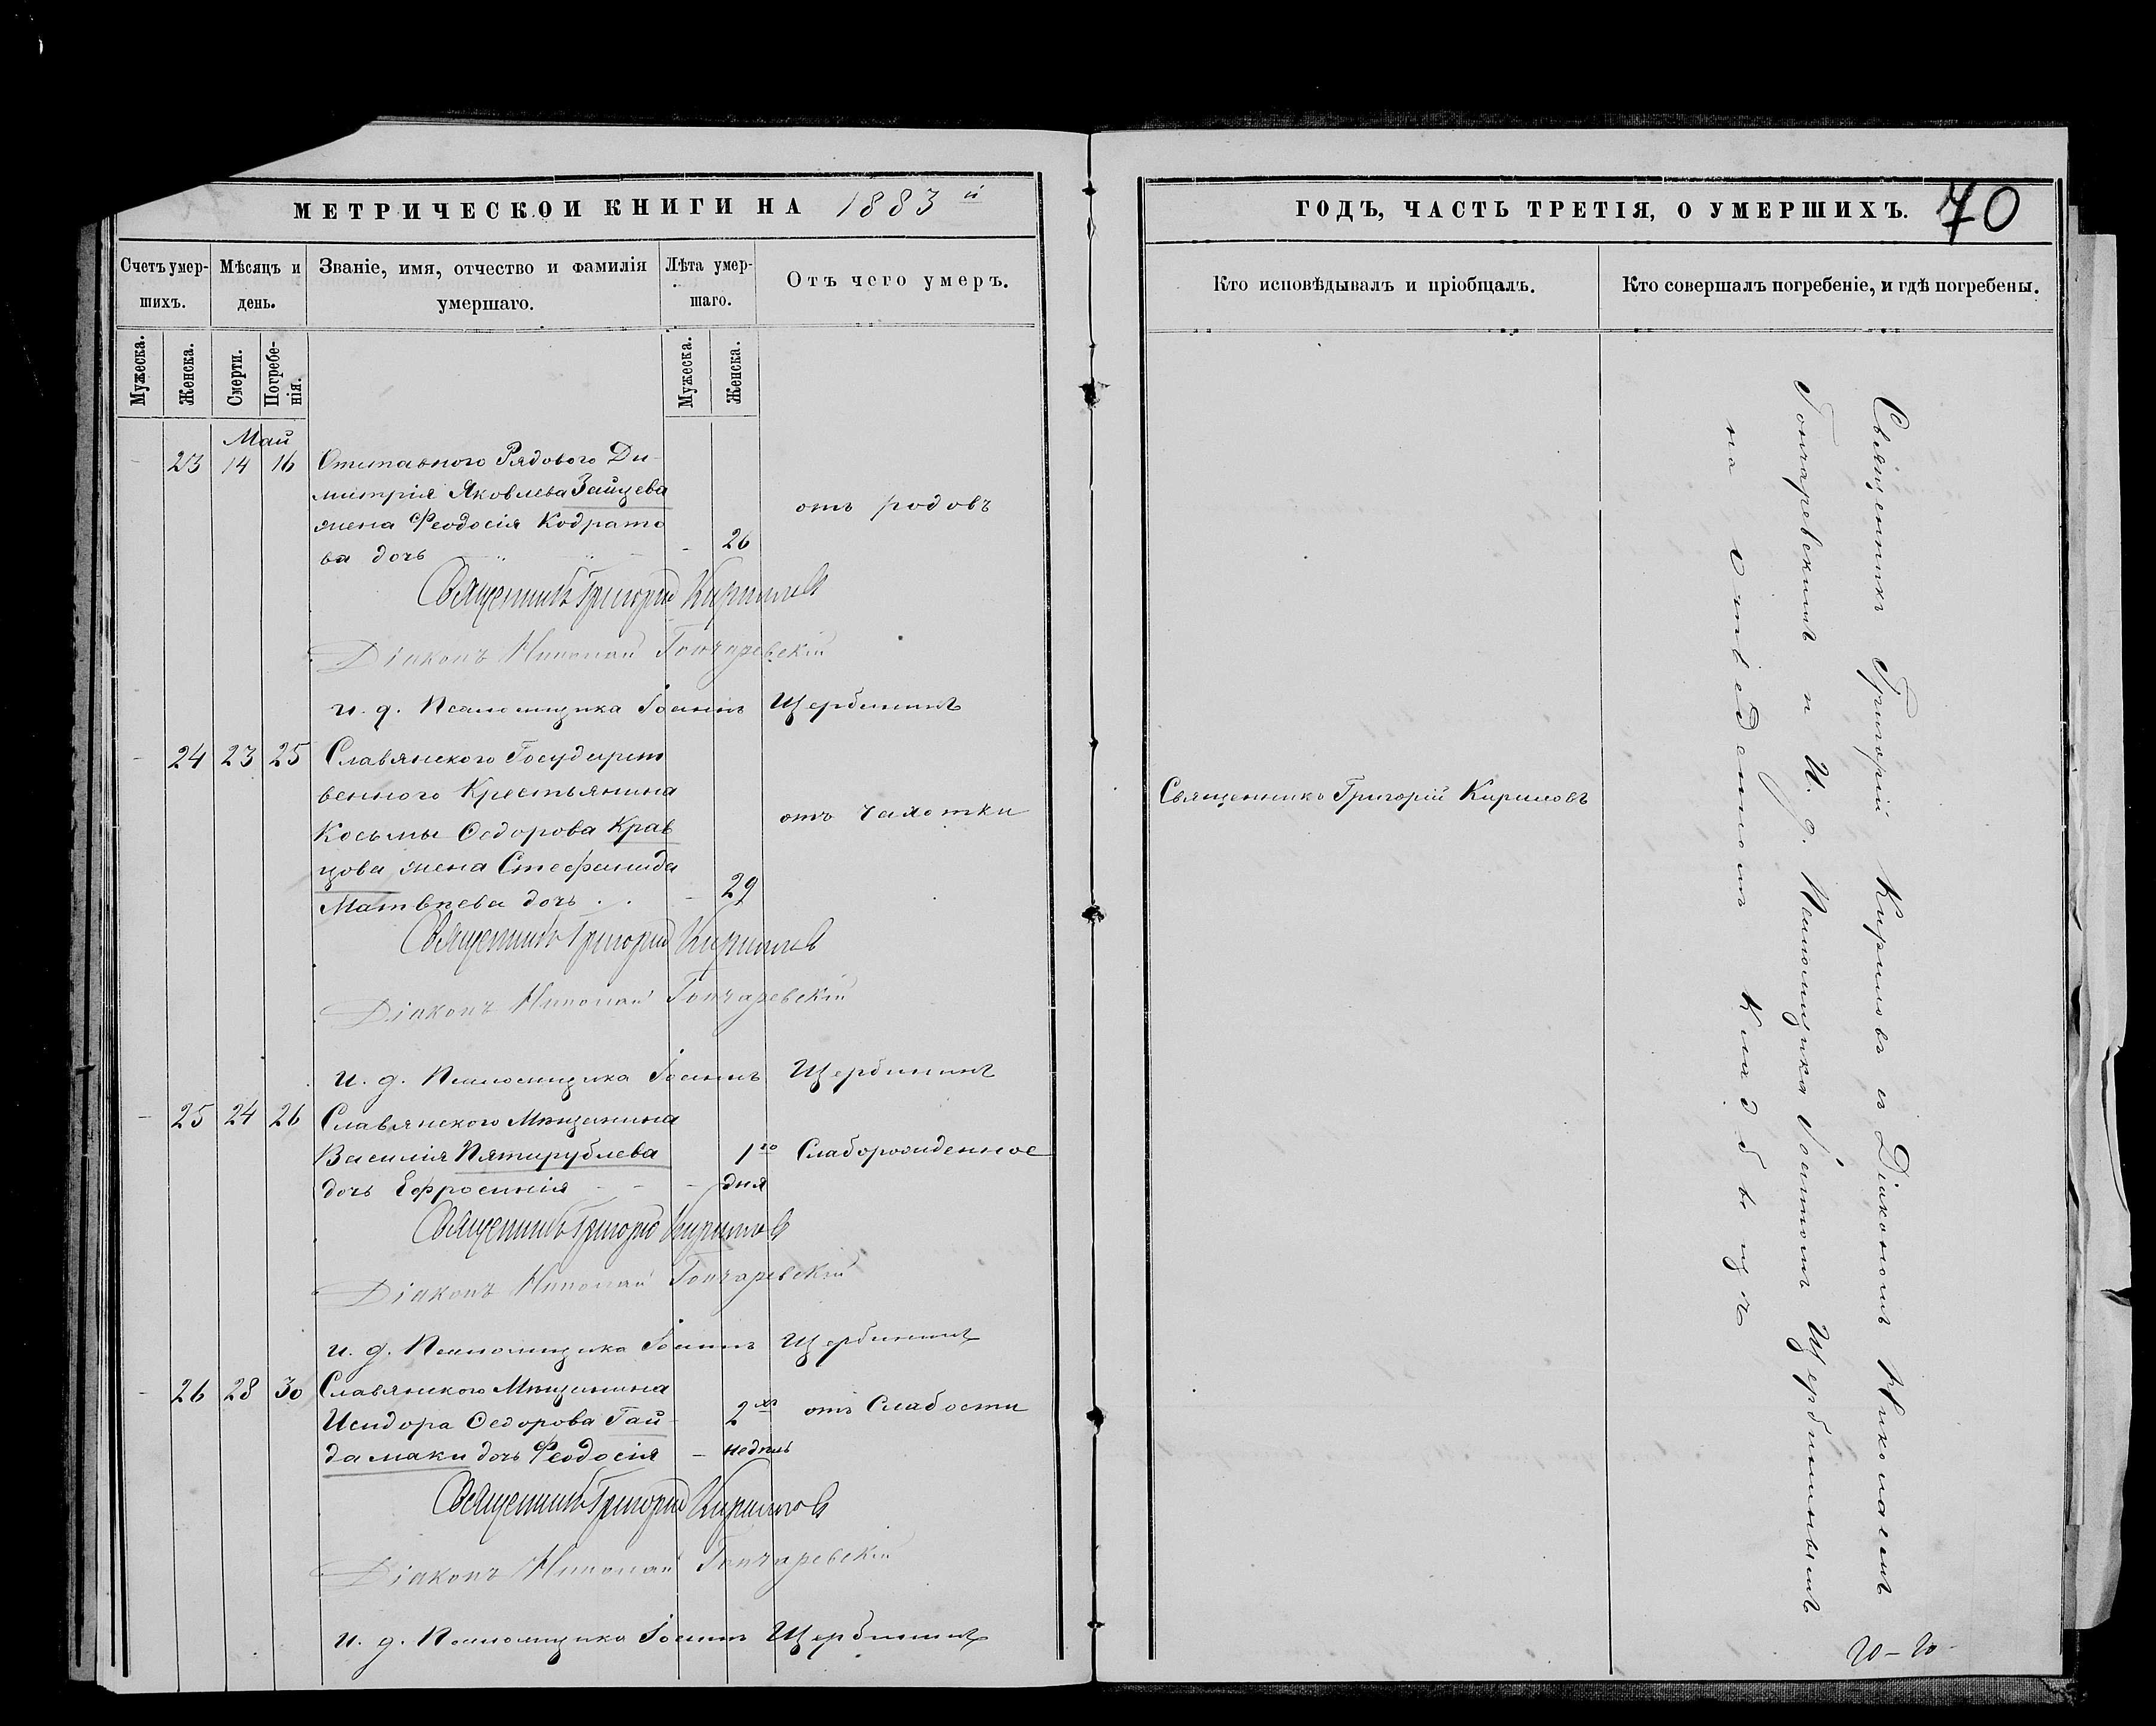 МЕТРИЧЕСКОИ КНИГИ НА 1883 й
Счетъ умер-
шихъ.
Мѣсяцъ и
день.
Званіе, имя, отчество и фамилія
умершаго.
Лѣта умер-
шаго.
Отъ чего умеръ.
Мужеска.
Женска.
Смерти.
Погребе-
нія.
Мужеска.
Женска.
Май
- 23 14 16 Отставного Рядового Ди-
митрія Яковлева Зайцева
жена Феодосія Кодрато
ва дочь - 26
отъ родовъ
Священникъ Григорій Кириловъ
Діаконъ Николай Гончаревскій
и. д. Псаломщика Іоаннъ Щербининъ
- 24 23 25 Славянского Государст
венного Крестьянина
Косьмы Ѳедорова Крав
цова жена Стефанида
Матвѣева дочь - 29
отъ чахотки
Священникъ Григорій Кириловъ
Діаконъ Николай Гончаревскій
и. д. Псаломщика Іоаннъ Щербининъ
- 25 24 26 Славянского Мѣщанина
Василія Пятирублева 1го Слаборожденное
дочь Ефросинія - - - дня
Священникъ Григорій Кириловъ
Діаконъ Николай Гончаревскій
и. д. Псаломщика Іоаннъ Щербининъ
- 26 28 30 Славянского Мѣщанина
Исидора Ѳедорова Гай- 2хъ отъ Слабости
дамаки дочь Феодосія - недѣль
Священникъ Григорій Кириловъ
Діаконъ Николай Гончаревскій
и. д. Псаломщика Іоаннъ Щербининъ
ГОДЪ, ЧАСТЬ ТРЕТІЯ, О УМЕРШИХЪ. 70
Кто исповѣдывалъ и пріобщалъ.
Кто совершалъ погребеніе, и гдѣ погребены.
Священникъ Григорій Кириловъ
Священникъ Григорій Кириловъ съ Діакономъ Николаемъ
Гончаревскимъ и И. д. Псаломщика Іоанномъ Щербининымъ
на отведенномъ кладбищѣ